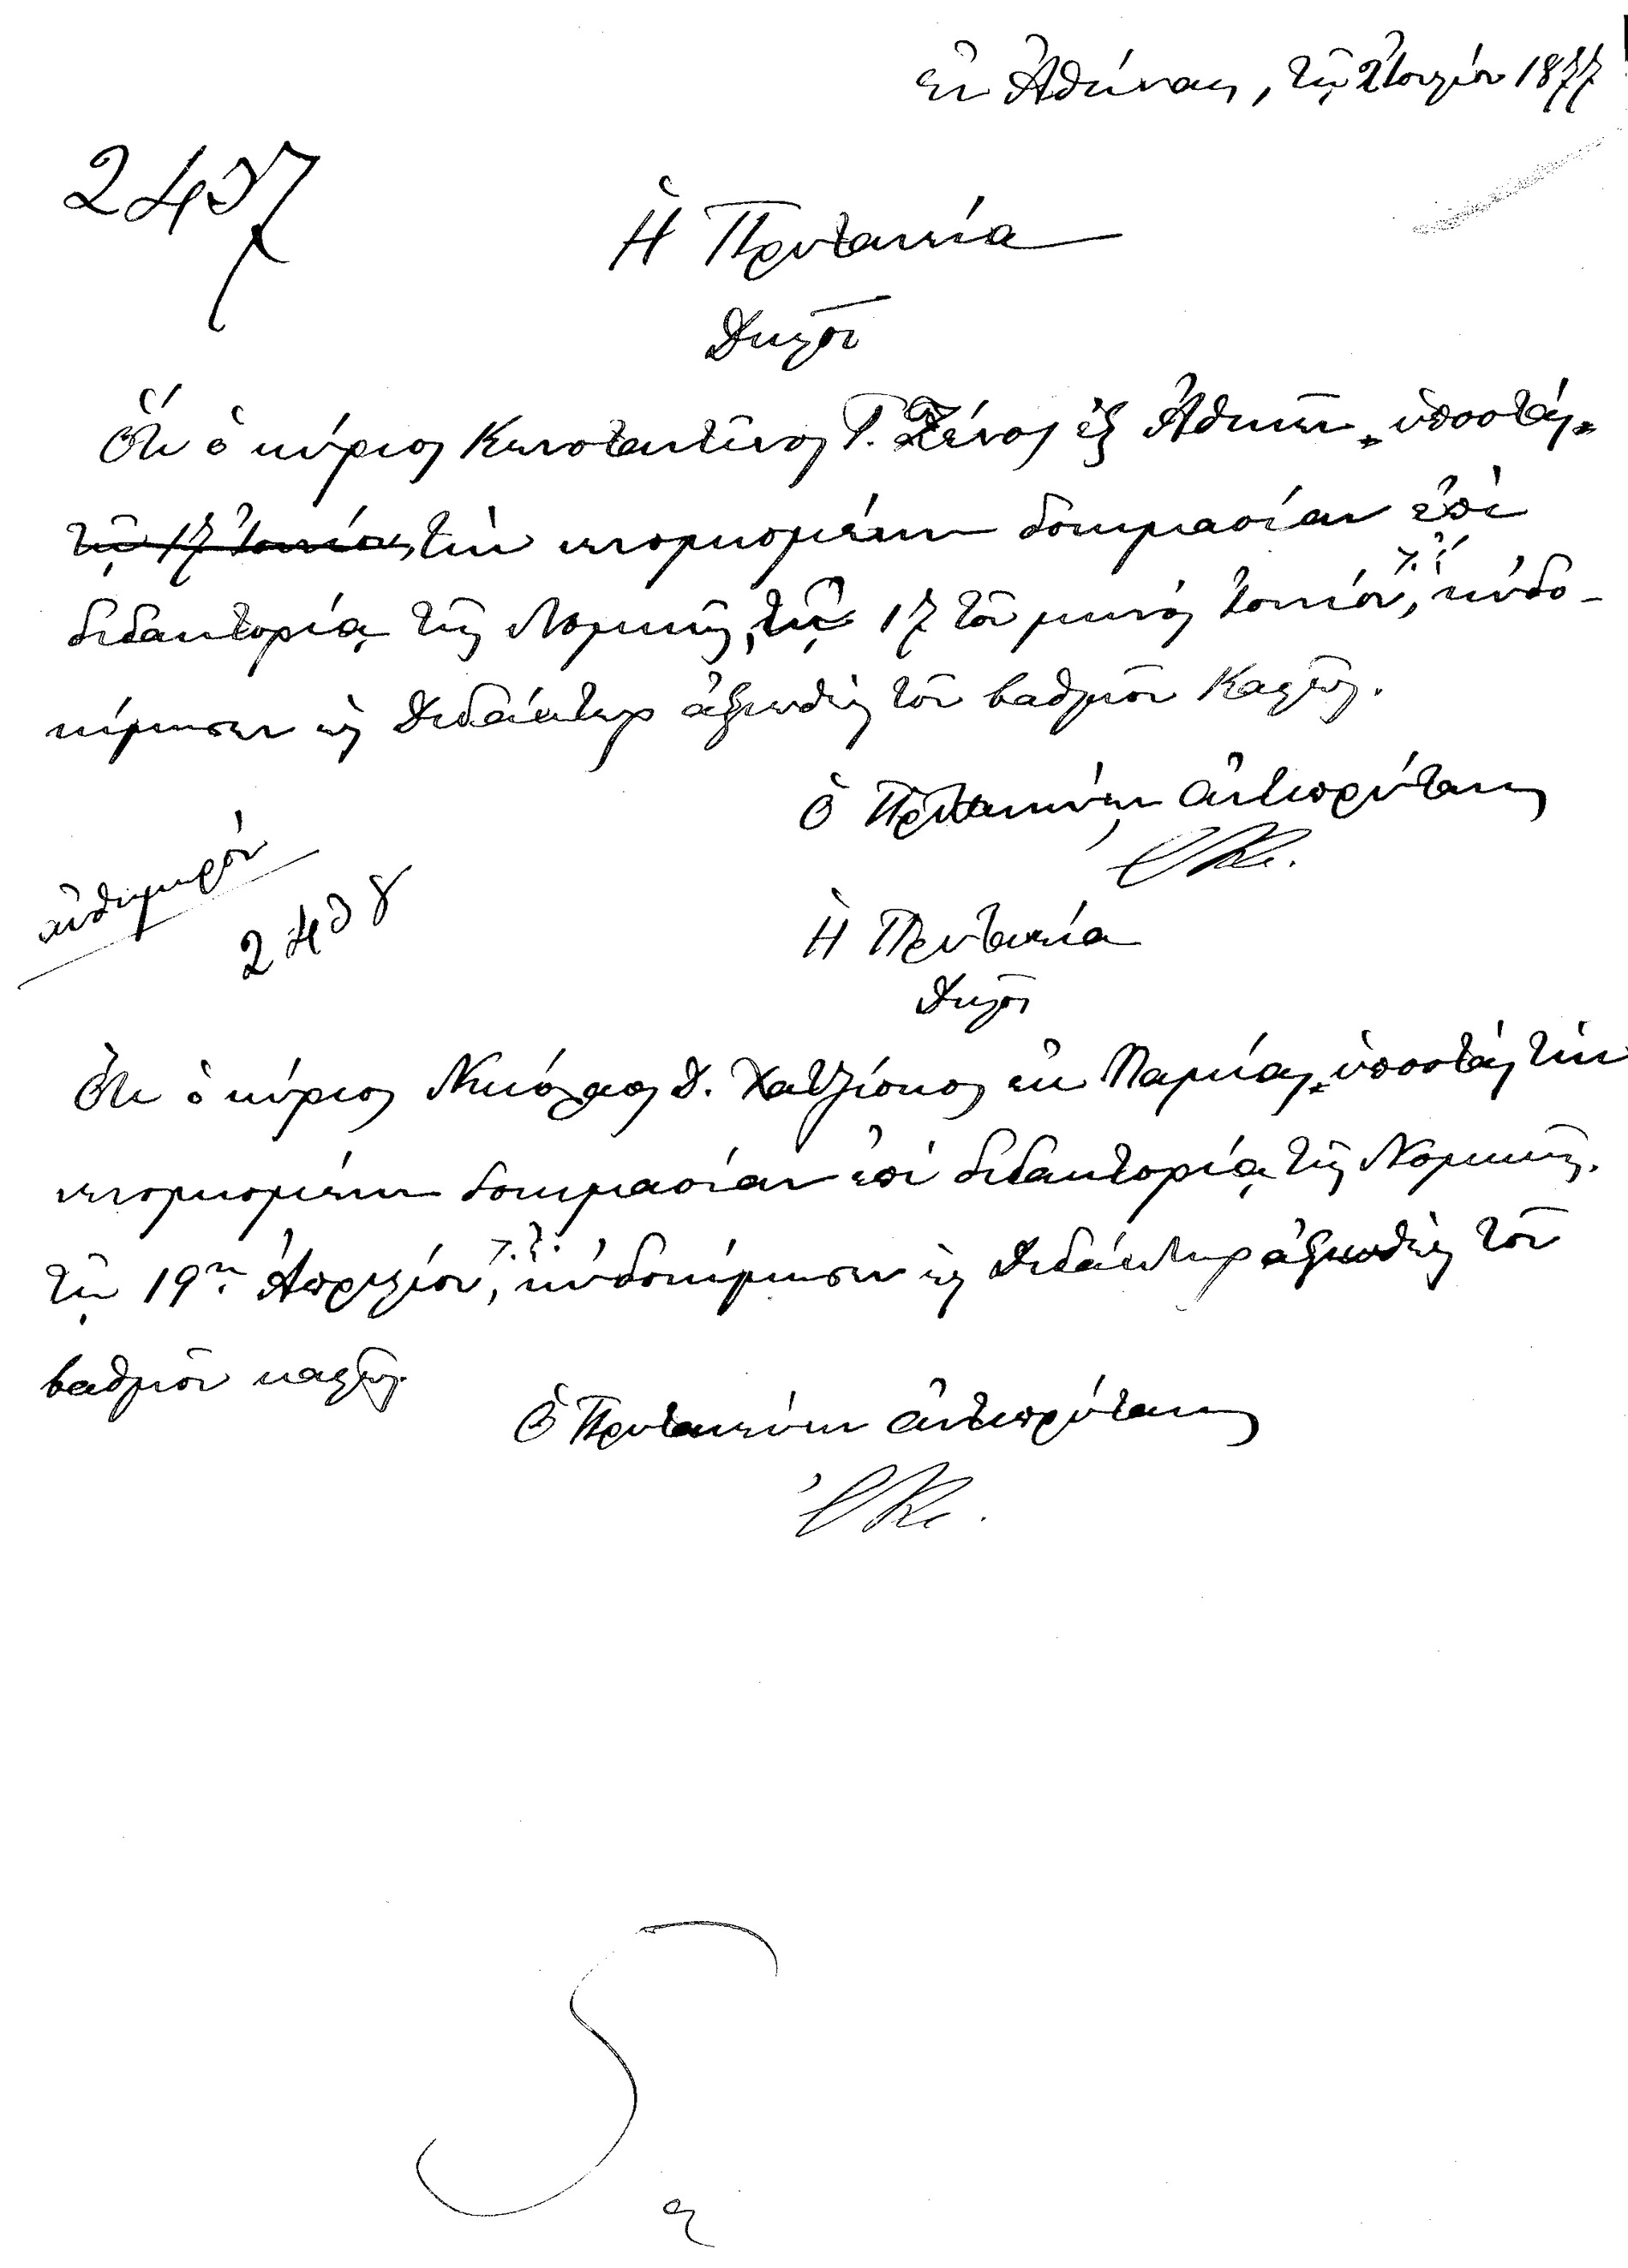 Ἐν Ἀθήναις, τῇ 2 Ἰουλίου 1877
2437
Ἡ Πρυτανεία
Δηλοῖ
Ὅτι ὁ κύριος Κωνσταντῖνος Γ. Ζένος ἐξ Ἀθηνῶν „ὑποστὰς„
τῇ 17 Ἰουνίου, τὴν νενομισμένην δοκιμασίαν ἐπὶ
διδακτορίᾳ τῆς Νομικῆς, τῇ 17 τοῦ μηνὸς Ἰουνίου, ἔ.ἔ. ηὐδο-
κίμησεν ὡς Διδάκτωρ ἀξιωθεὶς τοῦ βαθμοῦ Καλῶς.
Ὁ Πρυτανεύων ἀντιπρύτανις
αὐθημερόν
2438
Ἡ Πρυτανεία
Δηλοῖ
Ὅτι ὁ κύριος Νικόλαος Δ. Χατζίσκος ἐκ Λαμίας „ὑποστὰς τὴν
νενομισμένην δοκιμασίαν ἐπὶ διδακτορίᾳ τῆς Νομικῆς.
τῇ 19ῃ Ἀπριλίου, ἔ.ἔ. ηὐδοκίμησεν ὡς Διδάκτωρ ἀξιωθεὶς τοῦ
βαθμοῦ καλῶς.
Ὁ Πρυτανεύων ἀντιπρύτανις